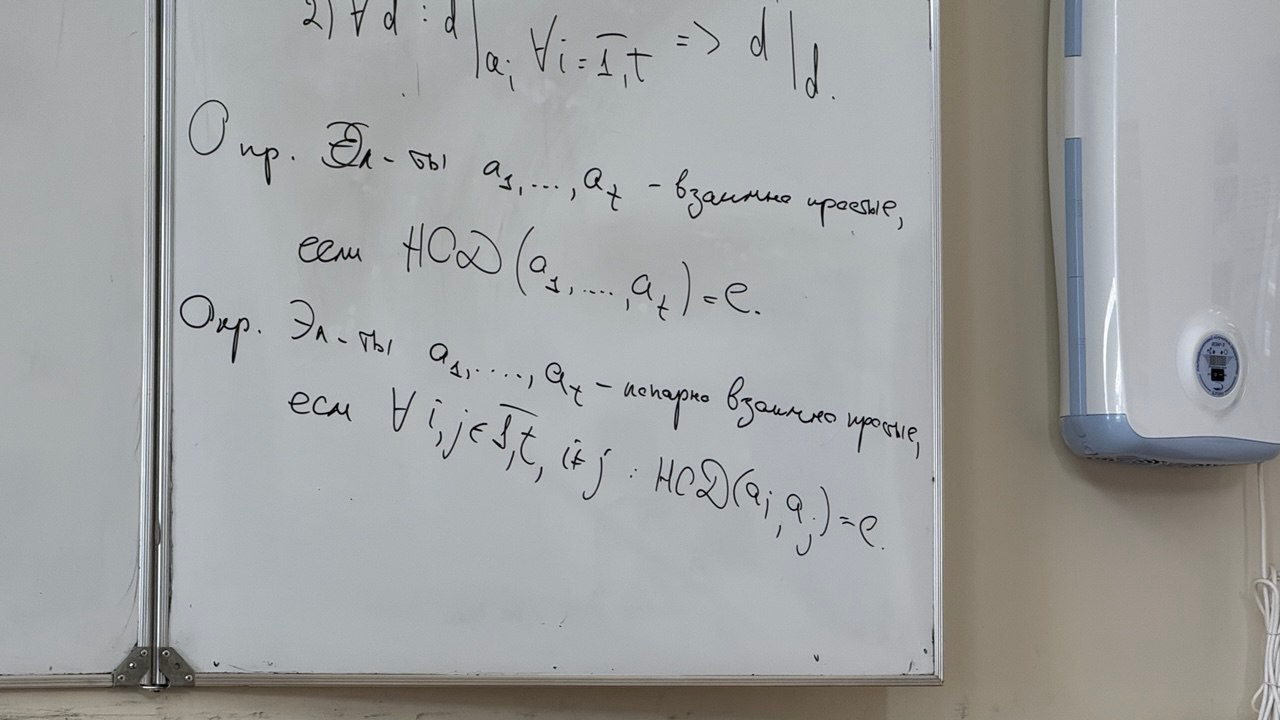 2) ∀ d : d | a_i ∀ i = \overline{1,t} => d | d.
Опр. Эл-ты a_1, ..., a_t - взаимно простые,
если НОД (a_1, ...., a_t) = e.
Опр. Эл-ты a_1, ...., a_t - попарно взаимно простые,
если ∀ i, j ∈ \overline{1,t}, i ≠ j : НОД (a_i, a_j) = e.